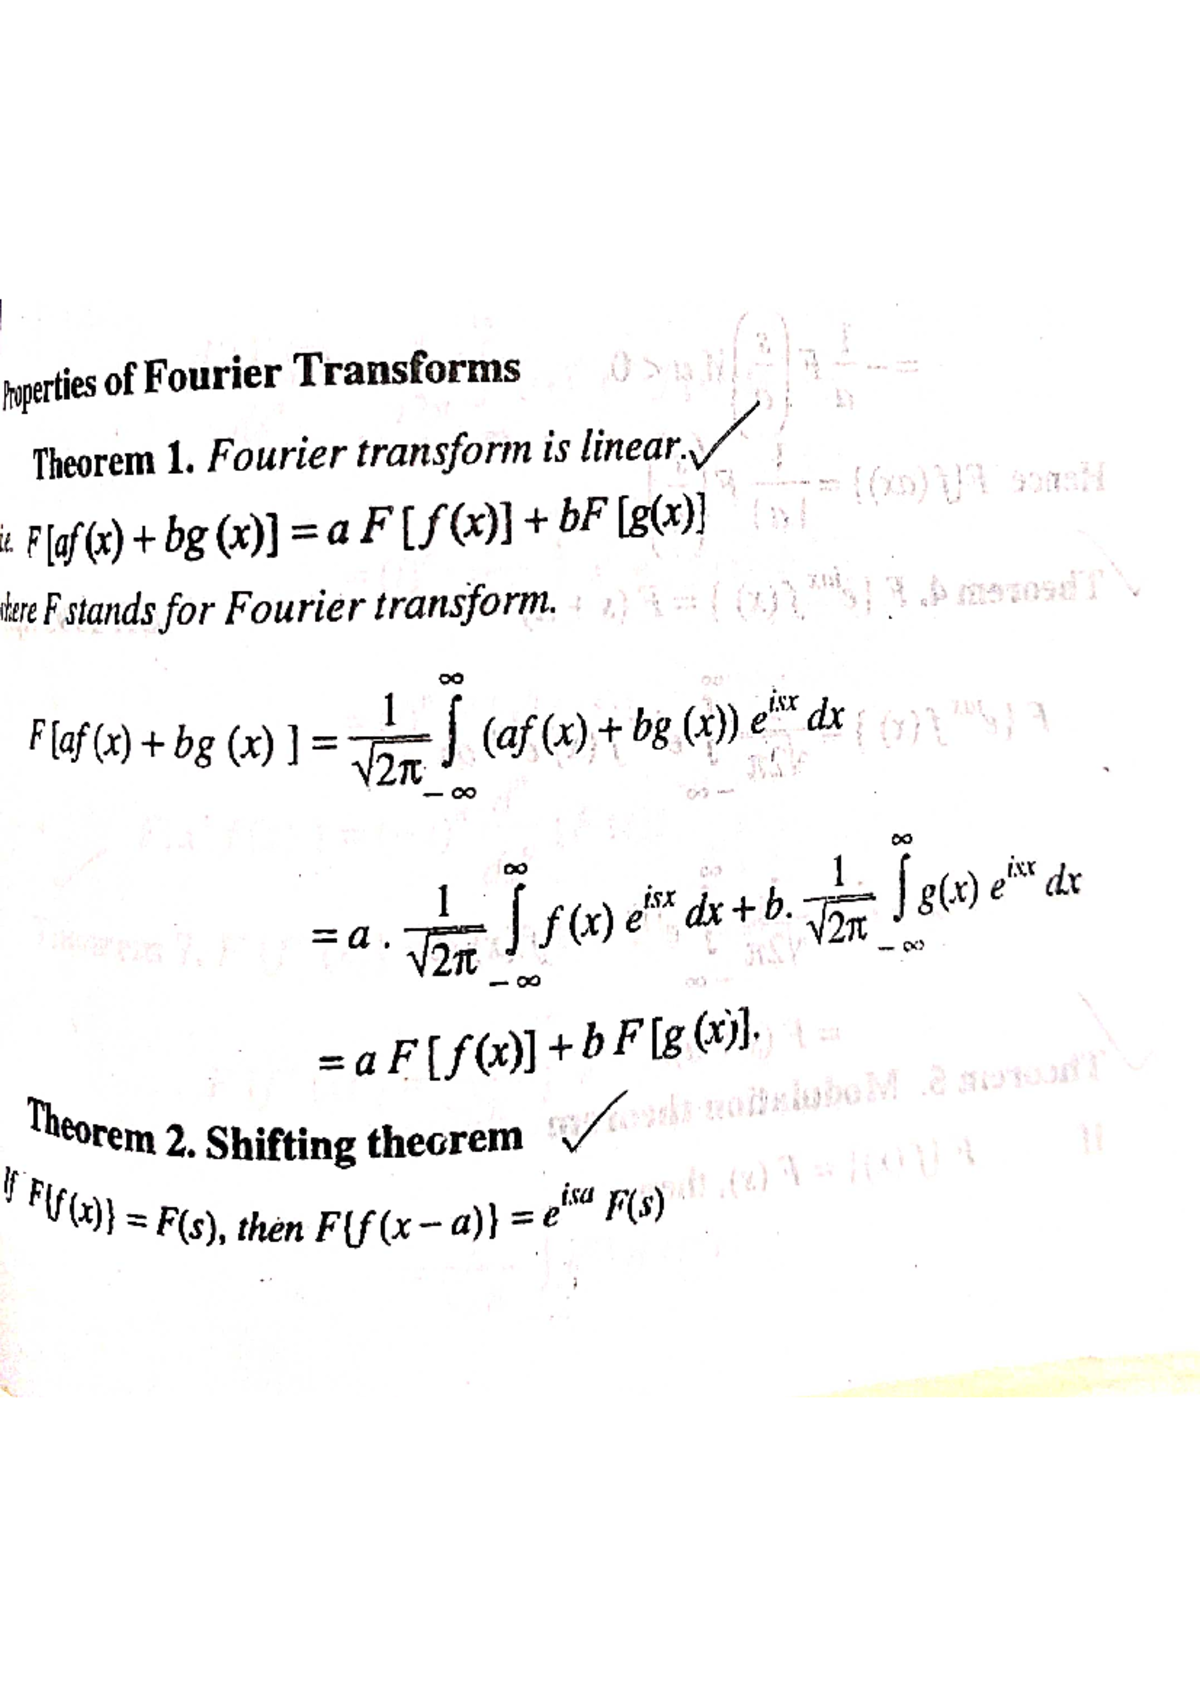 Properties of Fourier Transforms
Theorem 1. Fourier transform is linear.✓
i.e. F[af(x) + bg (x)] = a F [ f (x)] + bF [g(x)]
where F stands for Fourier transform.
F[af (x) + bg (x) ] = 1/√2π ∫_{-∞}^{∞} (af (x) + bg (x)) e^{isx} dx
= a . 1/√2π ∫_{-∞}^{∞} f (x) e^{isx} dx + b. 1/√2π ∫_{-∞}^{∞} g(x) e^{isx} dx
= a F [ f (x)] + b F [g (x)].
Theorem 2. Shifting theorem ✓
If F{f (x)} = F(s), then F{f (x – a)} = e^{isa} F(s)